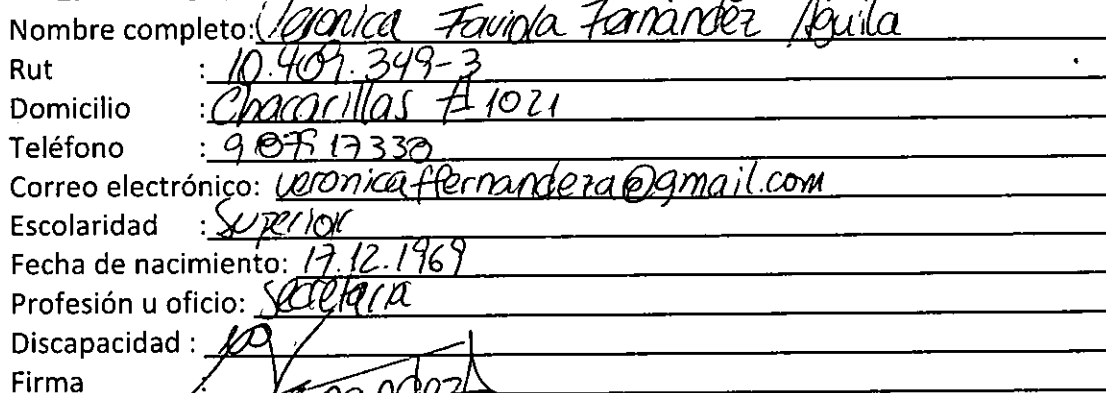 Nombre completo: Veronica Faviola Fernández Aguila
Rut : 10.409.349-3
Domicilio : Chacarillas # 1021
Teléfono : 9 87517330
Correo electrónico: veronicaffernandeza@gmail.com
Escolaridad : Superior
Fecha de nacimiento: 17.12.1969
Profesión u oficio: Secretaria
Discapacidad : no
Firma :